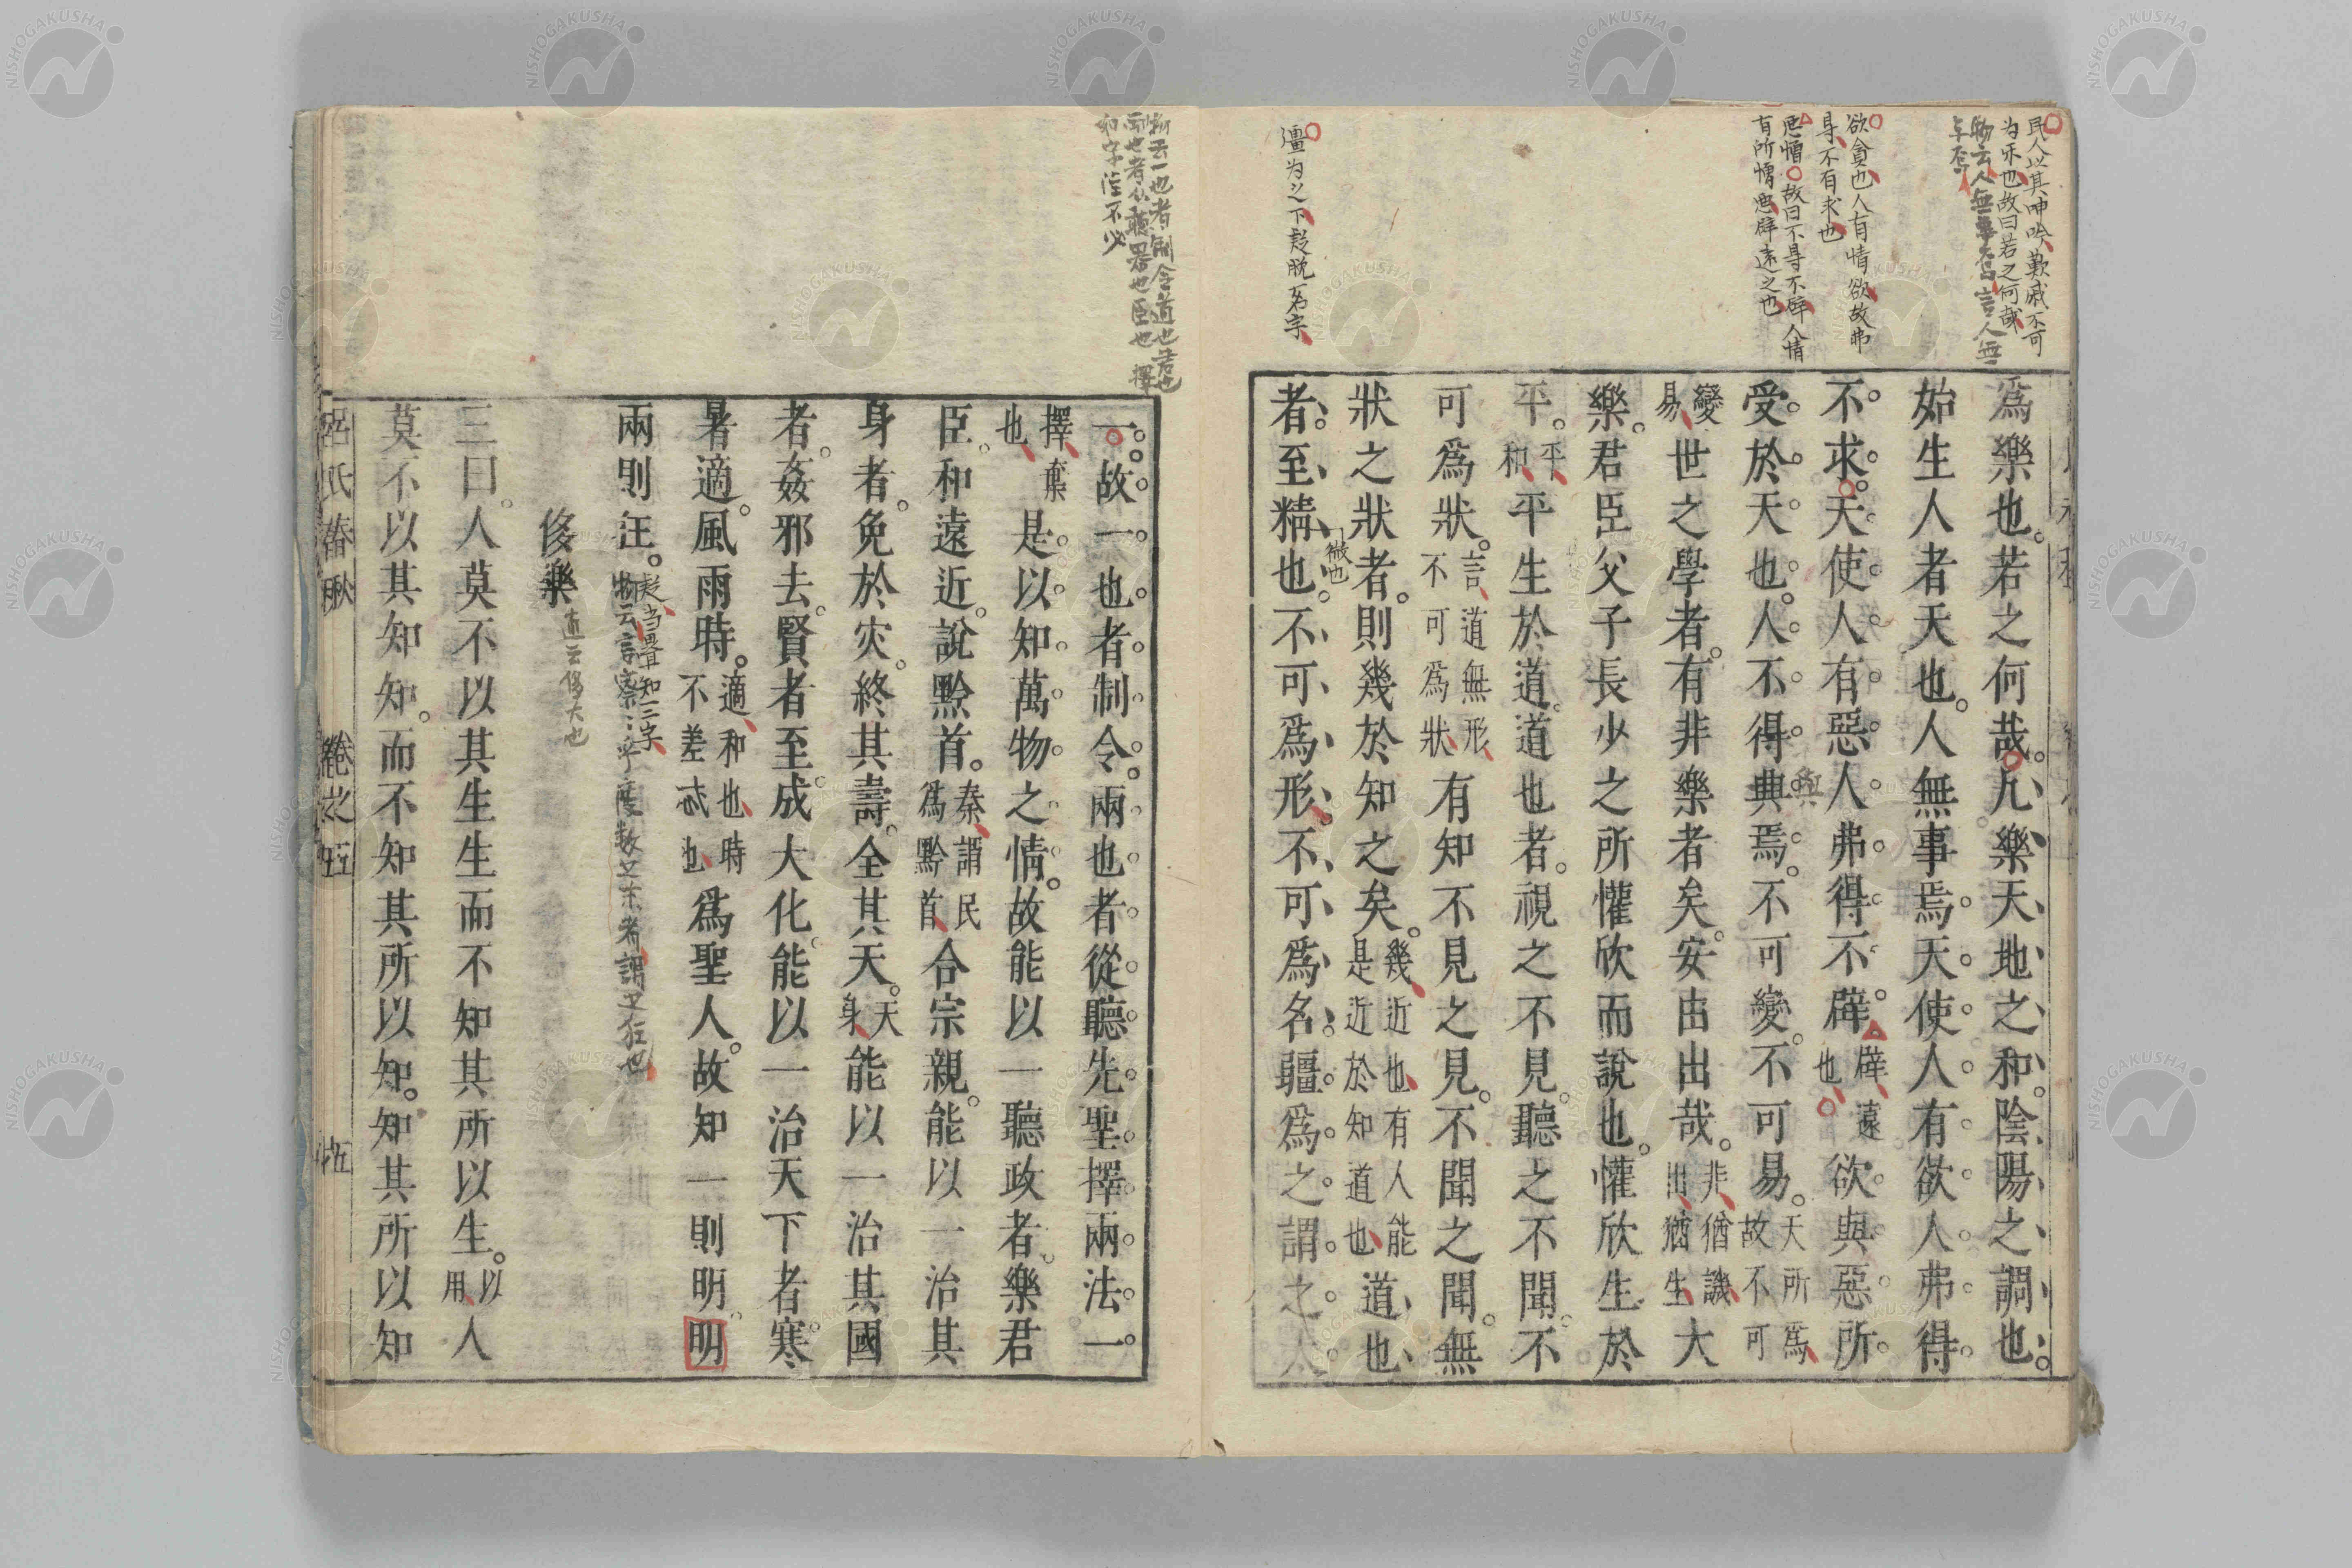 民人以其呻吟歎戚不可
為乐也故曰若之何哉
物云人無事者言人無
欲貪也人有情欲故弗
得不有求也
惡憎故曰不得不辟人情
有所憎惡辟遠之也
彊为之下疑脱名字
為樂也若之何哉凡樂天地之和陰陽之調也
始生人者天也人無事焉天使人有欲人弗得
不求天使人有惡人弗得不辟辟遠也欲與惡所
受於天也人不得與焉不可變不可易天所為故不可
變易世之學者有非樂者矣安由出哉非猶譏出猶生大
樂君臣父子長少之所懽欣而說也懽欣生於
平平和平生於道道也者視之不見聽之不聞不
可為狀言道無形不可為狀有知不見之見不聞之聞無
狀之狀者則幾於知之矣幾近也有人能是近於知道也道也
者至精也不可為形不可為名彊為之謂之太
微也
物云一也者制令道也君也
兩也者从聽器也臣也擇
和字注不必
一故一也者制令兩也者從聽先聖擇兩法一
擇棄也是以知萬物之情故能以一聽政者樂君
臣和遠近說黔首秦謂民為黔首合宗親能以一治其
身者免於灾終其壽全其天天身能以一治其國
者姦邪去賢者至成大化能以一治天下者寒
暑適風雨時適和也時不差忒也為聖人故知一則明明
兩則狂
疑当置知三字
侈樂
三曰人莫不以其生生而不知其所以生以用人
莫不以其知知而不知其所以知知其所以知
呂氏春秋 卷之五 五